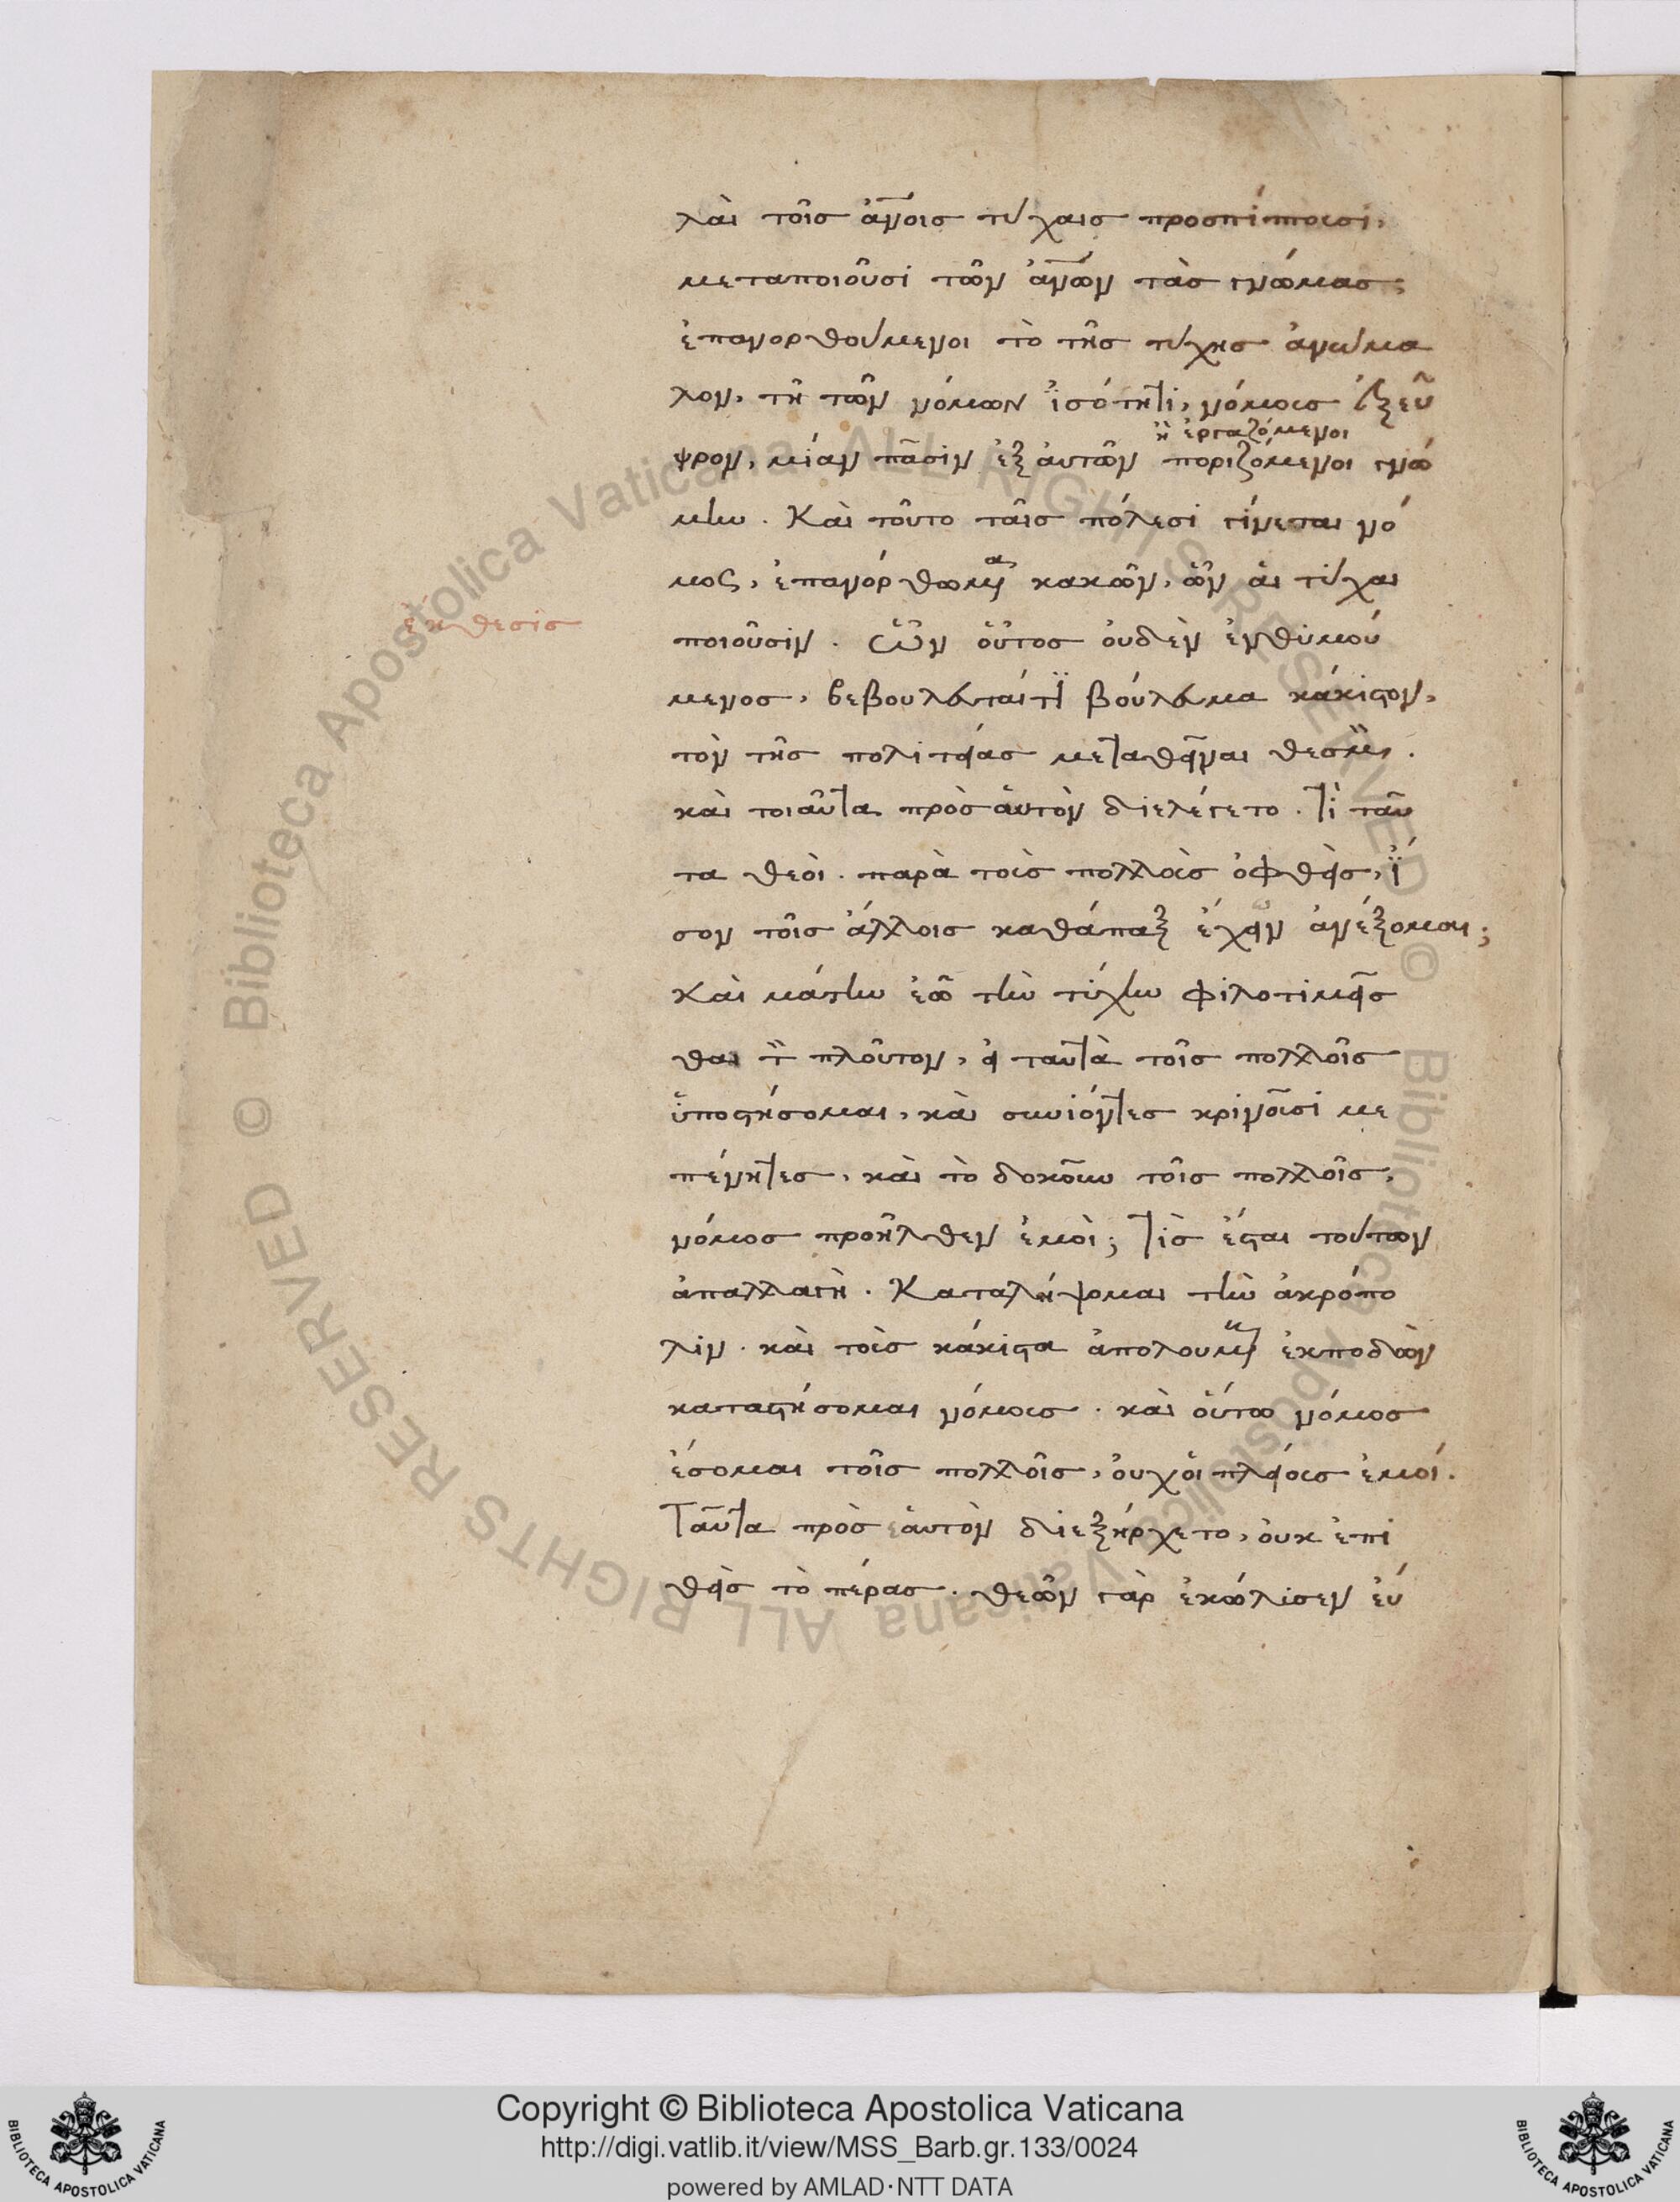 λαι τοῖς ἀνοις τύχαις προσπίπτουσι,
μεταποιοῦσι τῶν ἀνων τὰς γνώμας,
ἐπανορθούμενοι τὸ τῆς τύχης ἀνώμα
λον, τῆ τῶν νόμων ἰσότητι, νόμους ἐξεῦ
ἢ ἐργαζόμενοι
ρον, μίαν πᾶσιν ἐξ αὐτῶν ποριζόμενοι γνώ
μην. Καὶ τοῦτο ταῖς πόλεσι γίνεται νό
μος, ἐπανόρθωμα κακῶν, ὧν αἱ τύχαι
ἔκθεσις
ποιοῦσιν. Ὧν οὗτος οὐδὲν ἐνθυμού
μενος, βεβούλευταί τι βούλευμα κάκιστον,
τὸν τῆς πολιτείας μεταθεῖναι θεσμόν.
καὶ τοιαῦτα πρὸς αὑτὸν διελέγετο. Τί ταῦ
τα θεοί. παρὰ τοὺς πολλοὺς ὀφθεὶς, ἴ
σον τοῖς ἄλλοις καθάπαξ ἔχειν ἀνέξομαι;
Καὶ μάτην ἐῶ τὴν τύχην φιλοτιμεῖσ
θαι τὸν πλοῦτον, εἰ ταυτὰ τοῖς πολλοῖς
ὑποστήσομαι, καὶ συνιόντες κρινοῦσί με
πένητες, καὶ τὸ δοκοῦν τοῖς πολλοῖς,
νόμος προῆλθεν ἐμοί; Τίς ἔσται τούτων
ἀπαλλαγὴ. Καταλήψομαι τὴν ἀκρόπο
λιν. καὶ τοὺς κάκιστα ἀπολουμένους ἐκποδὼν
καταστήσομαι νόμους. καὶ οὕτω νόμος
ἔσομαι τοῖς πολλοῖς, οὐχ οἱ πλείους ἐμοί.
Ταῦτα πρὸς ἑαυτὸν διεξήρχετο, οὐκ ἐπι
θεὶς τὸ πέρας. θεῶν γὰρ ἐκώλυσεν εὐ
Copyright © Biblioteca Apostolica Vaticana
http://digi.vatlib.it/view/MSS_Barb.gr.133/0024
powered by AMLAD·NTT DATA
BIBLIOTECA APOSTOLICA VATICANA
BIBLIOTECA APOSTOLICA VATICANA
© Biblioteca Apostolica Vaticana ALL RIGHTS RESERVED © Biblioteca Apostolica Vaticana ALL RIGHTS RESERVED